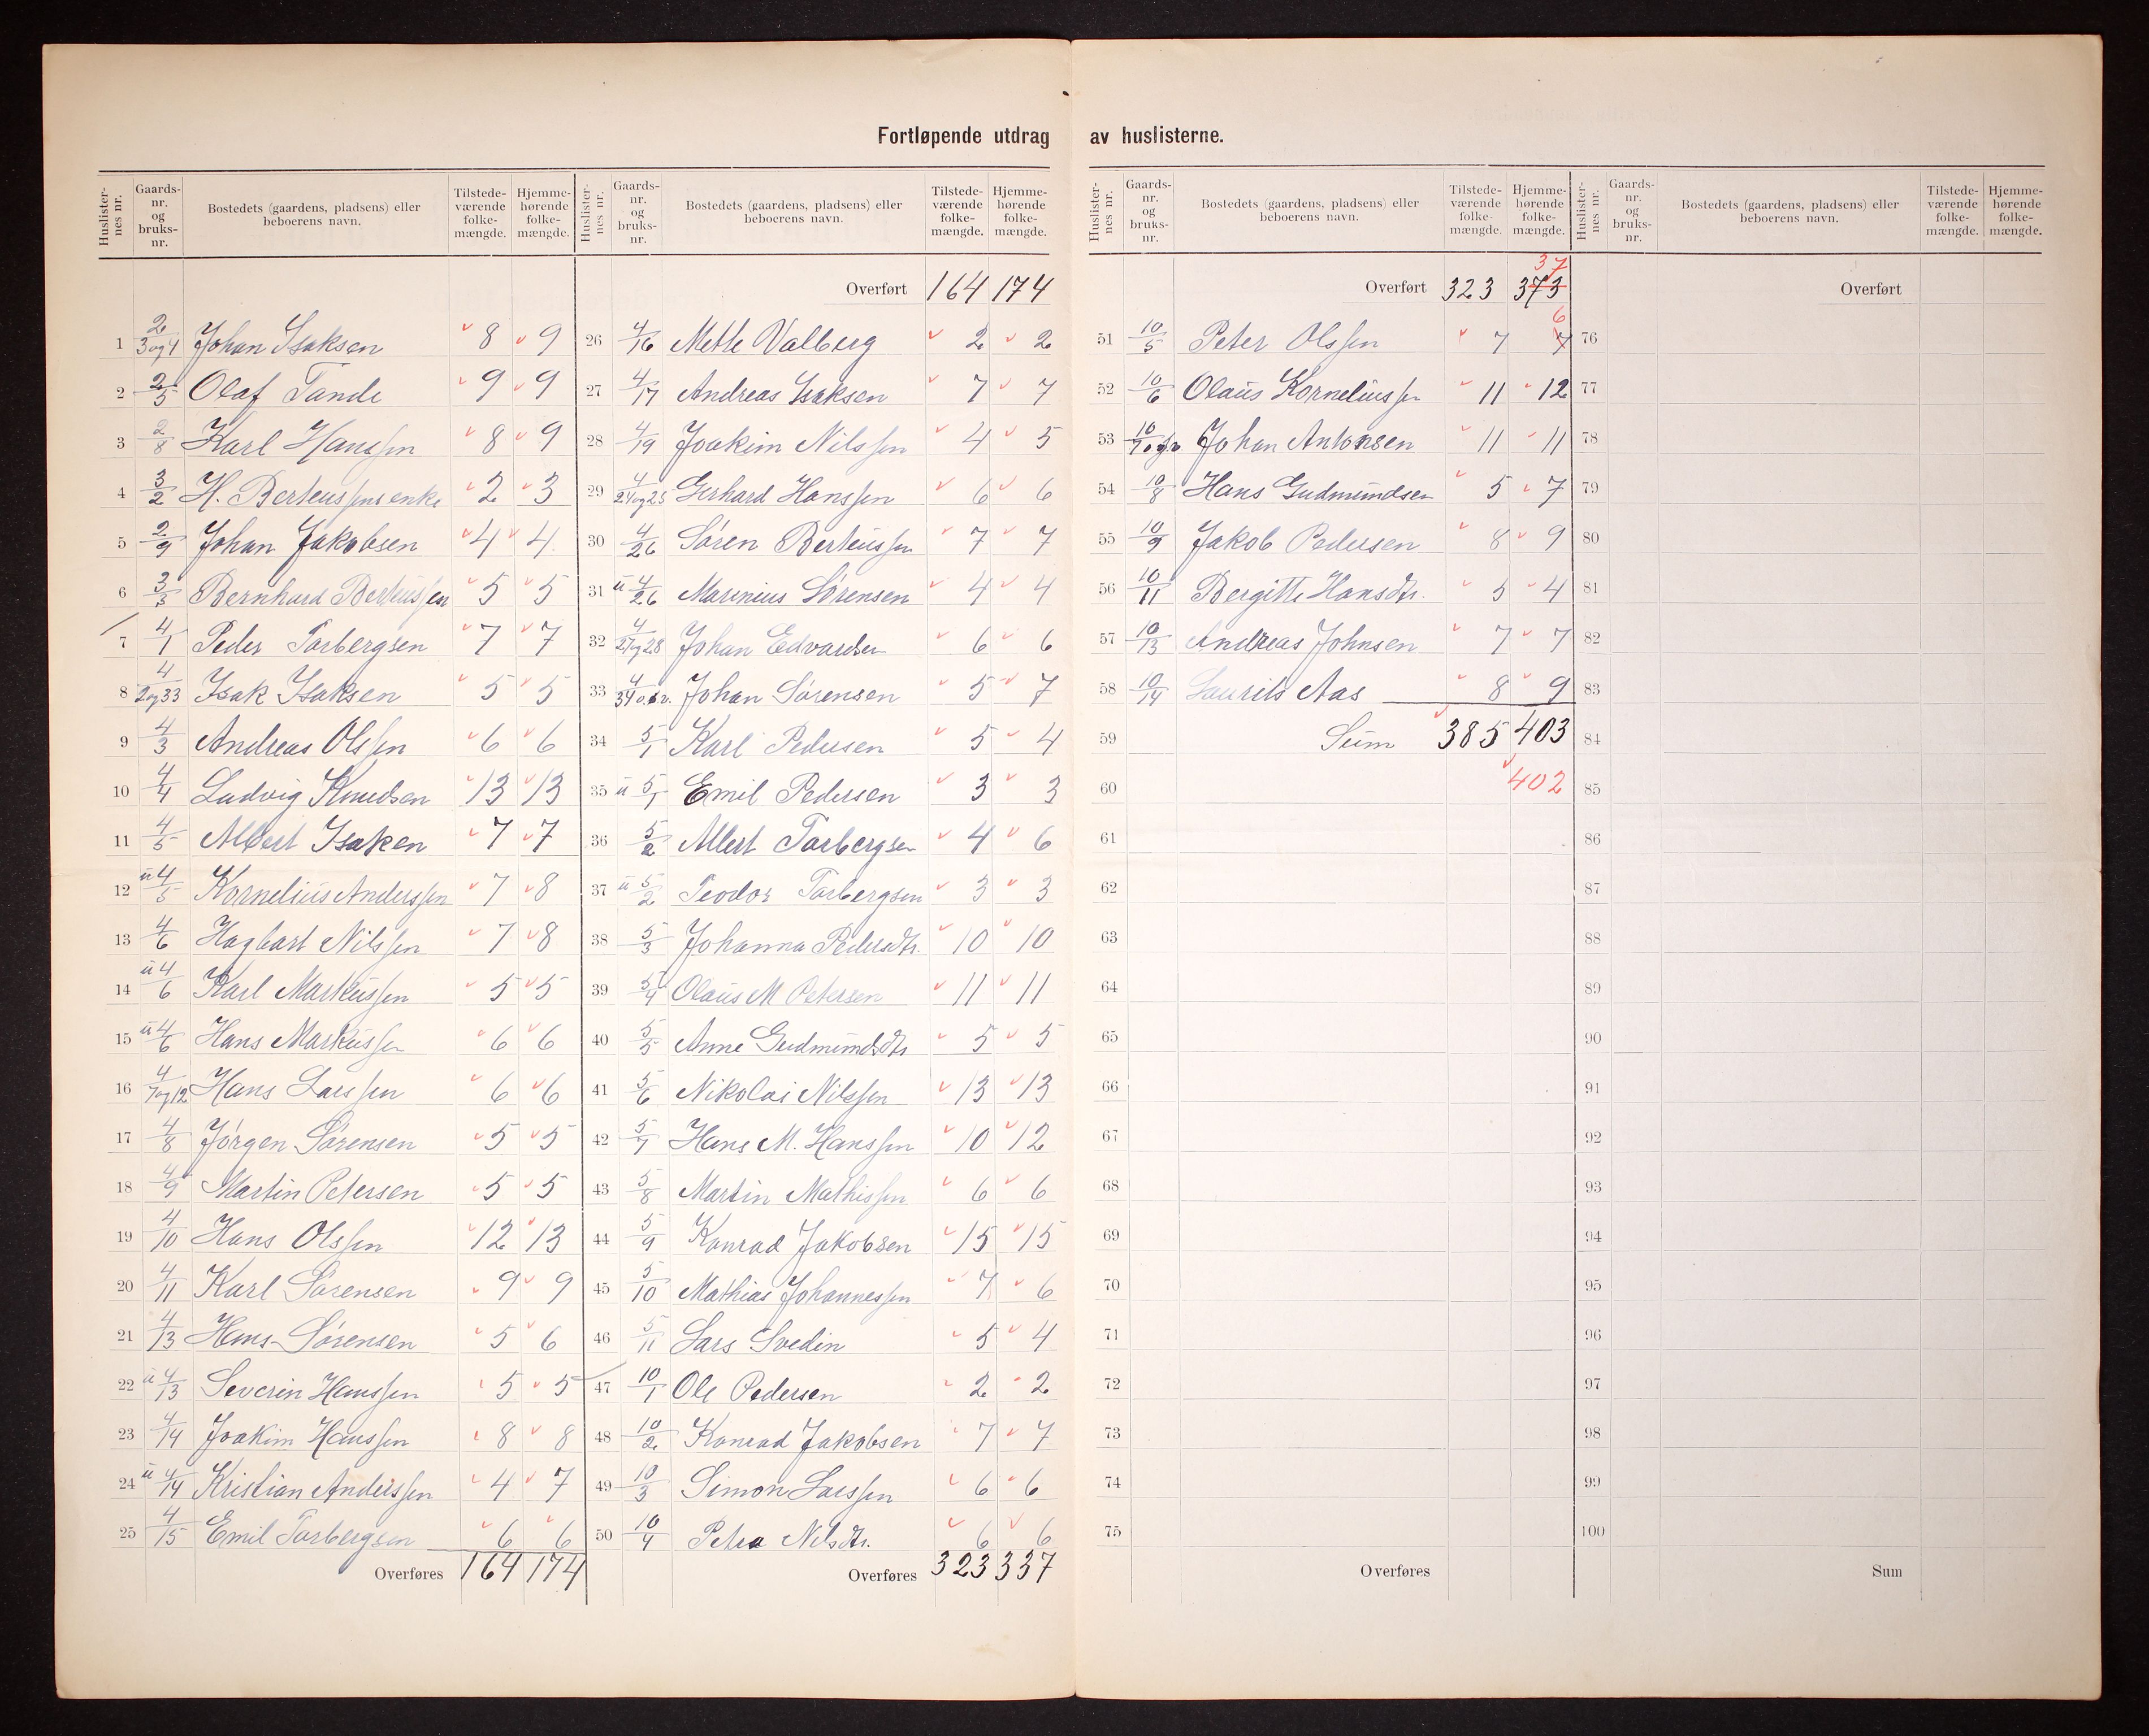 Fortløpende utdrag av huslisterne.
Huslisternes nr. Gaards-nr. og bruks-nr. Bostedets (gaardens, pladsens) eller beboerens navn. Tilstede-værende folke-mængde. Hjemme-hørende folke-mængde.
1 2/3og4 Johan Isaksen 8 9
2 2/5 Olaf Tande 9 9
3 2/8 Karl Hanssen 8 9
4 3/2 H. Berteussens enke 2 3
5 2/9 Johan Jakobsen 4 4
6 3/3 Bernhard Berteussen 5 5
7 4/1 Peder Torbergsen 7 7
8 4/2og33 Isak Isaksen 5 5
9 4/3 Andreas Olssen 6 6
10 4/4 Ludvig Knudsen 13 13
11 4/5 Albert Isaken 7 7
12 u 4/5 Kornelius Anderssen 7 8
13 4/6 Hagbart Nilssen 7 8
14 u 4/6 Karl Markussen 5 5
15 u 4/6 Hans Markussen 6 6
16 4/7og12 Hans Larssen 6 6
17 4/8 Jørgen Sørensen 5 5
18 4/9 Martin Petersen 5 5
19 4/10 Hans Olssen 12 13
20 4/11 Karl Sørensen 9 9
21 4/13 Hans Sørensen 5 6
22 u 4/13 Severin Hanssen 5 5
23 4/14 Joakim Hanssen 8 8
24 u 4/14 Kristian Anderssen 4 7
25 4/15 Emil Torbergsen 6 6
Overføres 164 174
Huslisternes nr. Gaards-nr. og bruks-nr. Bostedets (gaardens, pladsens) eller beboerens navn. Tilstede-værende folke-mængde. Hjemme-hørende folke-mængde.
Overført 164 174
26 4/16 Mette Valberg 2 2
27 4/17 Andreas Isaksen 7 7
28 4/19 Joakim Nilssen 4 5
29 4/24og25 Gerhard Hanssen 6 6
30 4/26 Søren Berteussen 7 7
31 u 4/26 Marinius Sørensen 4 4
32 4/27og28 Johan Edvardsen 6 6
33 4/34 Johan Sørensen 5 7
34 5/1 Karl Pedersen 5 4
35 u 5/1 Emil Pedersen 3 3
36 5/2 Albert Torbergsen 4 6
37 u 5/2 Teodor Torbergsen 3 3
38 5/3 Johanna Pedersdtr. 10 10
39 5/4 Olaus M Petersen 11 11
40 5/5 Anne Gudmundsdtr 5 5
41 5/6 Nikolai Nilssen 13 13
42 5/7 Hans M. Hanssen 10 12
43 5/8 Martin Mathissen 6 6
44 5/9 Konrad Jakobsen 15 15
45 5/10 Mathias Johannessen 7 6
46 5/11 Lars Svedin 5 4
47 10/1 Ole Pedersen 2 2
48 10/2 Konrad Jakobsen 7 7
49 10/3 Simon Larssen 6 6
50 10/4 Petra Nilsdtr. 6 6
Overføres 323 337
Huslisternes nr. Gaards-nr. og bruks-nr. Bostedets (gaardens, pladsens) eller beboerens navn. Tilstede-værende folke-mængde. Hjemme-hørende folke-mængde.
37
Overført 323 373
6
51 10/5 Peter Olssen 7 7
52 10/6 Olaus Korneliussen 11 12
53 10/7 Johan Antonsen 11 11
54 10/8 Hans Gudmundsen 5 7
55 10/9 Jakob Pedersen 8 9
56 10/11 Bergitte Hansdtr. 5 4
57 10/13 Andreas Johnsen 7 7
58 10/14 Laurits Aas 8 9
59 Sum 385 403
60 402
61
62
63
64
65
66
67
68
69
70
71
72
73
74
75
Overføres
Huslisternes nr. Gaards-nr. og bruks-nr. Bostedets (gaardens, pladsens) eller beboerens navn. Tilstede-værende folke-mængde. Hjemme-hørende folke-mængde.
Overført
76
77
78
79
80
81
82
83
84
85
86
87
88
89
90
91
92
93
94
95
96
97
98
99
100
Sum